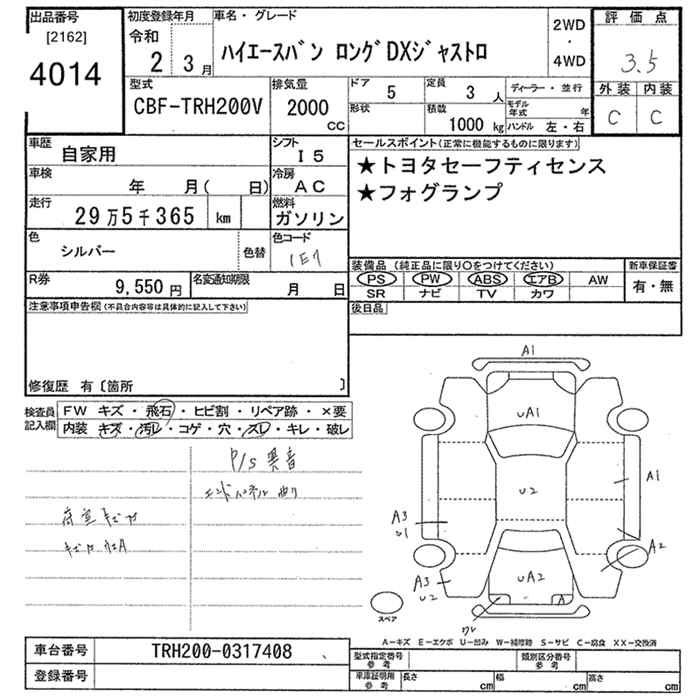 出品番号
[2162]
4014
初度登録年月
令和
2 3 月
車名・グレード
ハイエースバン ロングDXジャストロ
2WD
・
4WD
評価点
3.5
外装 内装
C C
型式
CBF-TRH200V
排気量
2000
CC
ドア
5
定員
3 人
ディーラー・並行
形状
積数
1000 kg
モデル年式 年
ハンドル 左・右
車歴
自家用
シフト
I5
セールスポイント(正常に機能するものに限ります)
★トヨタセーフティセンス
★フォグランプ
車検
年 月( 日)
冷房
AC
走行
29万5千365 km
燃料
ガソリン
色
シルバー
色替
色コード
1E7
装備品(純正品に限り○をつけてください)
PS PW ABS エアB AW
SR ナビ TV カワ
新車保証書
有・無
R券
9,550 円
名変通知期限
月 日
後日品
注意事項申告欄(不具合内容等は具体的に記入して下さい)
修復歴 有〔箇所 〕
検査員記入欄
FW キズ・飛石・ヒビ割・リペア跡・×要
内装 キズ・汚レ・コゲ・穴・スレ・キレ・破レ
P/S異音
エンドパネル曲り
荷室キズカ
A1
UA1
A1
U2
A3
A2
UA2
A3
U2
A
スペア
A-キズ E-エクボ U-凹み W-補修跡 S-サビ C-腐食 XX-交換済
車台番号
TRH200-0317408
登録番号
型式指定番号 参考
類別区分番号 参考
車庫証明用 参考
長さ cm
幅 cm
高さ cm